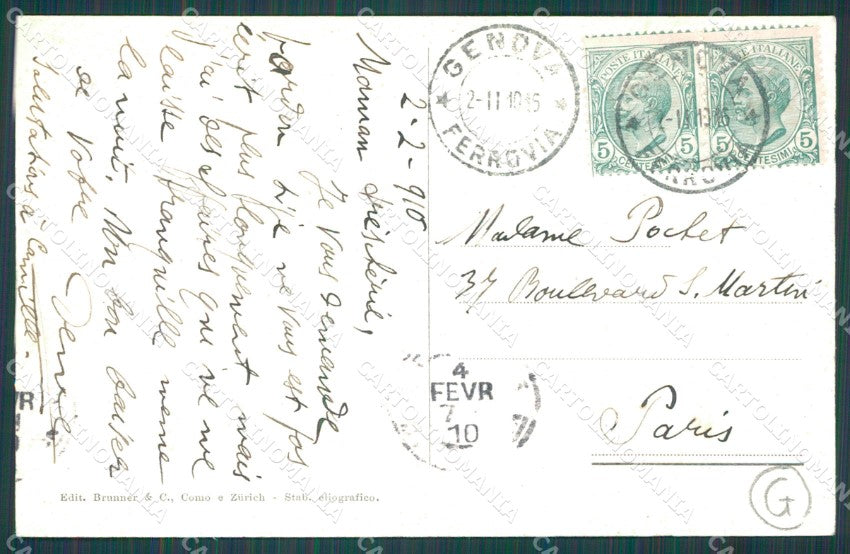 2-2-910
Maman chérie,
Je vous demande
pardon si je ne vous est pas
ecrit plus longuement mais
j'ai des affaires qui ne me
laisse tranquille meme
la nuit. Mon bon baiser
de Votre
Salutations a Camille.
Edit. Brunner & C., Como e Zürich - Stab. eliografico.
GENOVA
2-II 10 15
FERROVIA
POSTE ITALIANE
5 CENTESIMI 5
POSTE ITALIANE
5 CENTESIMI 5
GENOVA
FERROVIA
Madame Pochet
37 Boulevard S. Martin
Paris
4
FEVR
7
10
G
CARTOLINOMANIA